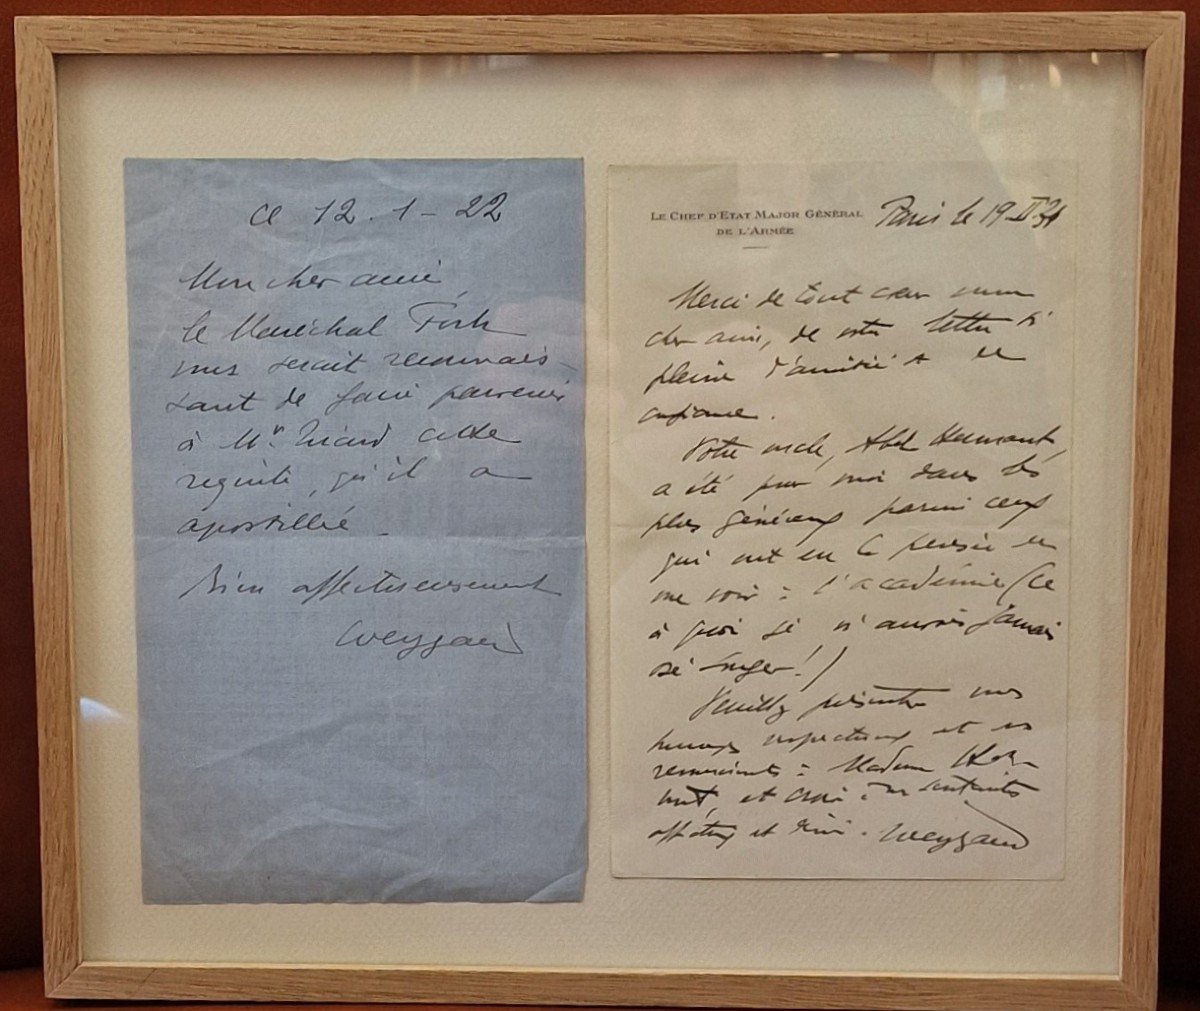 ce 12.1-22
Mon cher ami,
le Maréchal Foch
vous serait reconnais-
sant de faire parvenir
à Mr. cette
requête, qu'il a
apostillée.
Bien affectueusement
Weygand
LE CHEF D'ETAT MAJOR GÉNÉRAL
DE L'ARMÉE
Paris le 19-II
Merci de tout cœur mon
cher ami, de votre lettre si
pleine d'amitié et de
confiance.
Votre oncle, Abel Hermant,
a été pour moi dans les
plus généreux parmi ceux
qui ont eu la pensée de
me voir à l'académie (ce
à quoi je n'aurais jamais
osé songer!)
Veuillez présenter mes
hommages respectueux et mes
remerciements à Madame Her-
mant, et croire à mes sentiments
affectueux et . Weygand